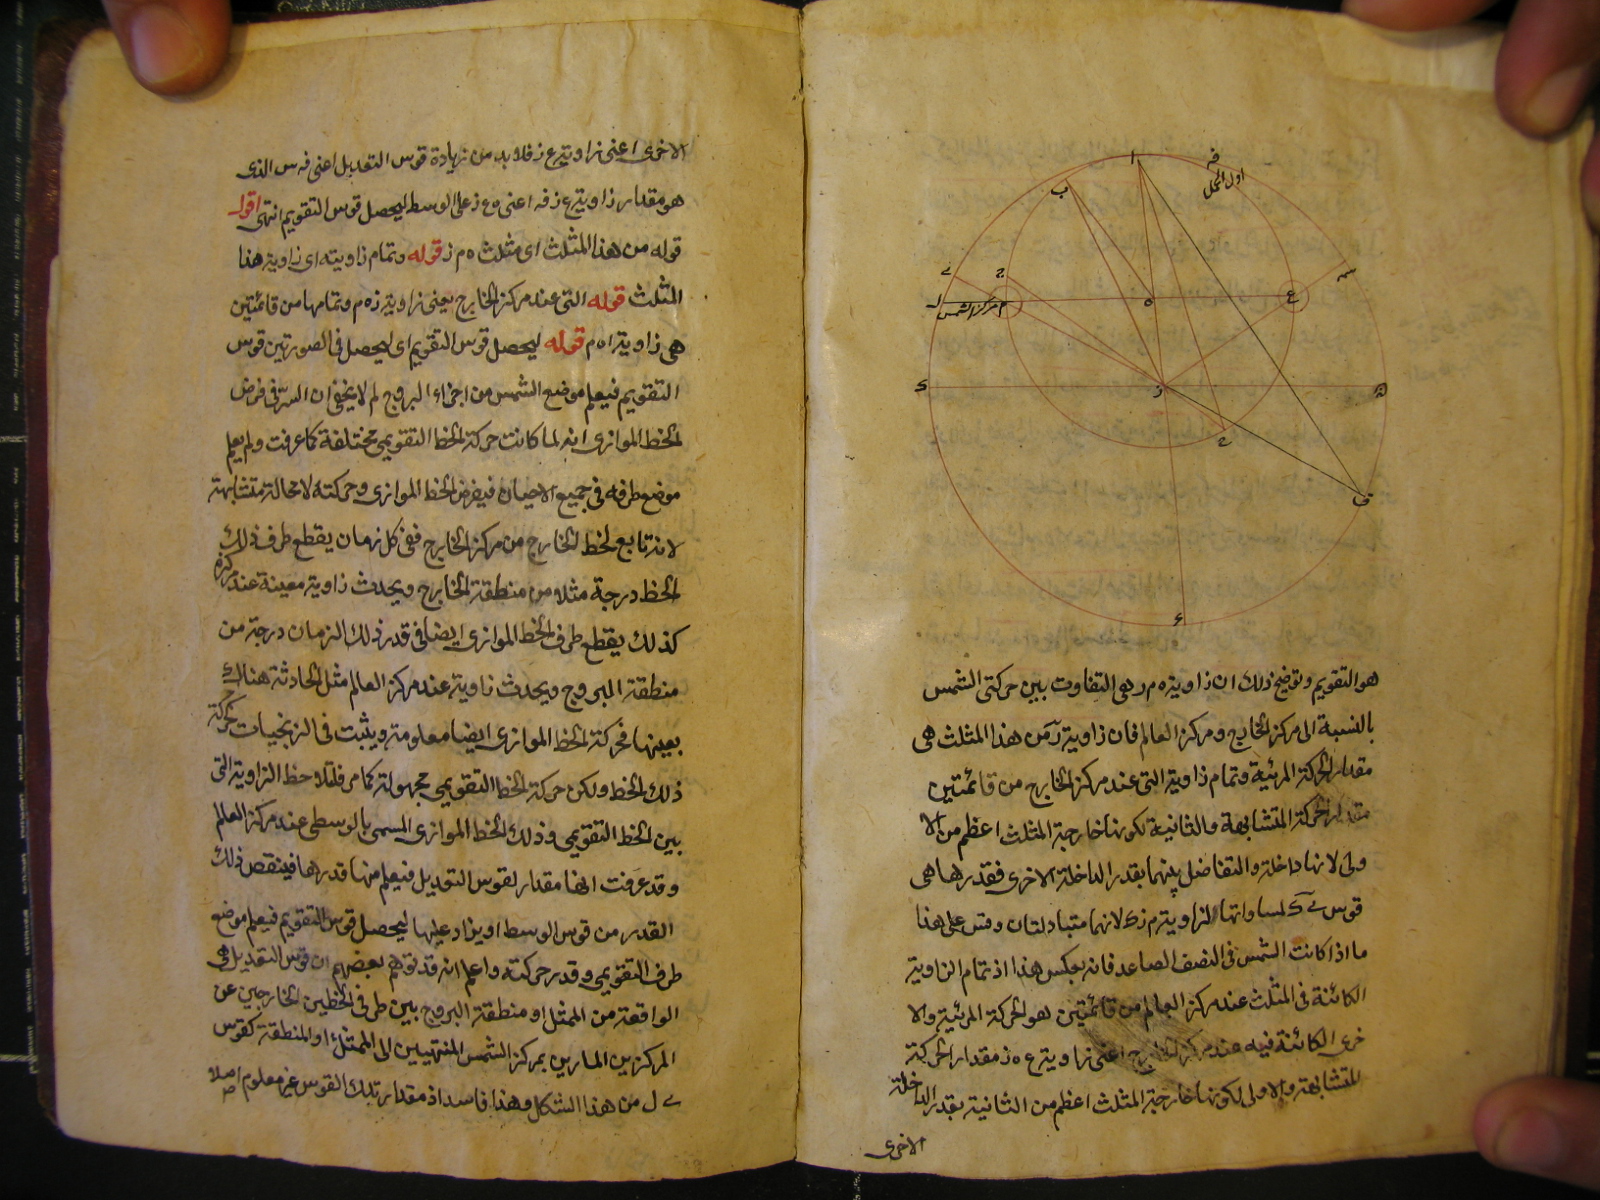 ا
فه
اول الحمل
ب
ح
م مركز الشمس
ل
ه
ع
س
ز
ح
ق
ء
هو التقويم وتوضيح ذلك ان زاوية ه م ر هى التفاوت بين حركتى الشمس
بالنسبة الى مركز الخارج ومركز العالم فان زاوية ر من هذا المثلث هى
مقدار الحركة المرئية وتمام زاوية التى عند مركز الخارج من قائمتين
مقدار الحركة المتشابهة والثانية لكونها خارجة المثلث اعظم من الا
ولى لانها داخلة والتفاضل بينهما بقدر الداخلة الاخرى فقدرها هى
قوس ى ك لمساواتها لزاوية م ز ى لانهما متبادلتان وقس على هذا
ما اذا كانت الشمس فى النصف الصاعد فانه بعكس هذا اذ تمام الزاوية
الكائنة فى المثلث عند مركز العالم من قائمتين هو الحركة المرئية والا
خرى الكائنة فيه عند مركز الخارج اعنى زاوية ع ه ز مقدار الحركة
المتشابهة والاولى لكونها خارجة المثلث اعظم من الثانية بقدر الداخلة
الاخرى
الاخرى اعنى زاوية ع ز فلابد من زيادة قوس التعديل اعنى فه س الذى
هو مقدار زاوية ع ز فه اعنى ه ع ز على الوسط ليحصل قوس التقويم انتهى اقول
قوله من هذا المثلث اى مثلث ه م ز قوله وتمام زاويته اى زاوية هذا
المثلث قوله التى عند مركز الخارج يعنى زاوية ز ه م وتمامها من قائمتين
هى زاوية ا ه م قوله ليحصل قوس التقويم اى ليحصل فى الصورتين قوس
التقويم فيعلم موضع الشمس من اجزاء البروج ثم لا يخفى ان السر فى فرض
الخط الموازى انه لما كانت حركة الخط التقويمى مختلفة كما عرفت ولم يعلم
موضع طرفه فى جميع الاحيان فيفرض الخط الموازى وحركته لا محالة متشابهة
لانه تابع لخط الخارج من مركز الخارج ففى كل زمان يقطع طرف ذلك
الخط درجة مثلا من منطقة الخارج ويحدث زاوية معينة عند مركزه
كذلك يقطع طرف الخط الموازى ايضا فى قدر ذلك الزمان درجة من
منطقة البروج ويحدث زاوية عند مركز العالم مثل الحادثة هناك
بعينها فحركة الخط الموازى ايضا معلومة ويثبت فى الزيجات حركة
ذلك الخط ولكن حركة الخط التقويمى مجهولة كما مر فلتلاحظ الزاوية التى
بين الخط التقويمى وذلك الخط الموازى المسمى بالوسطى عند مركز العالم
وقد عرفت انها مقدار لقوس التعديل فيعلم منها قدرها فينقص ذلك
القدر من قوس الوسط او يزاد عليها ليحصل قوس التقويم فيعلم موضع
طرف التقويمى وقدر حركته واعلم انه قد توهم بعضهم ان قوس التعديل هى
الواقعة من الممثل او منطقة البروج بين طرفى الخطين الخارجين عن
المركزين المارين بمركز الشمس المنتهيين الى الممثل او المنطقة كقوس
ى ل من هذا الشكل وهذا فاسد اذ مقدار تلك القوس غير معلوم اصلا